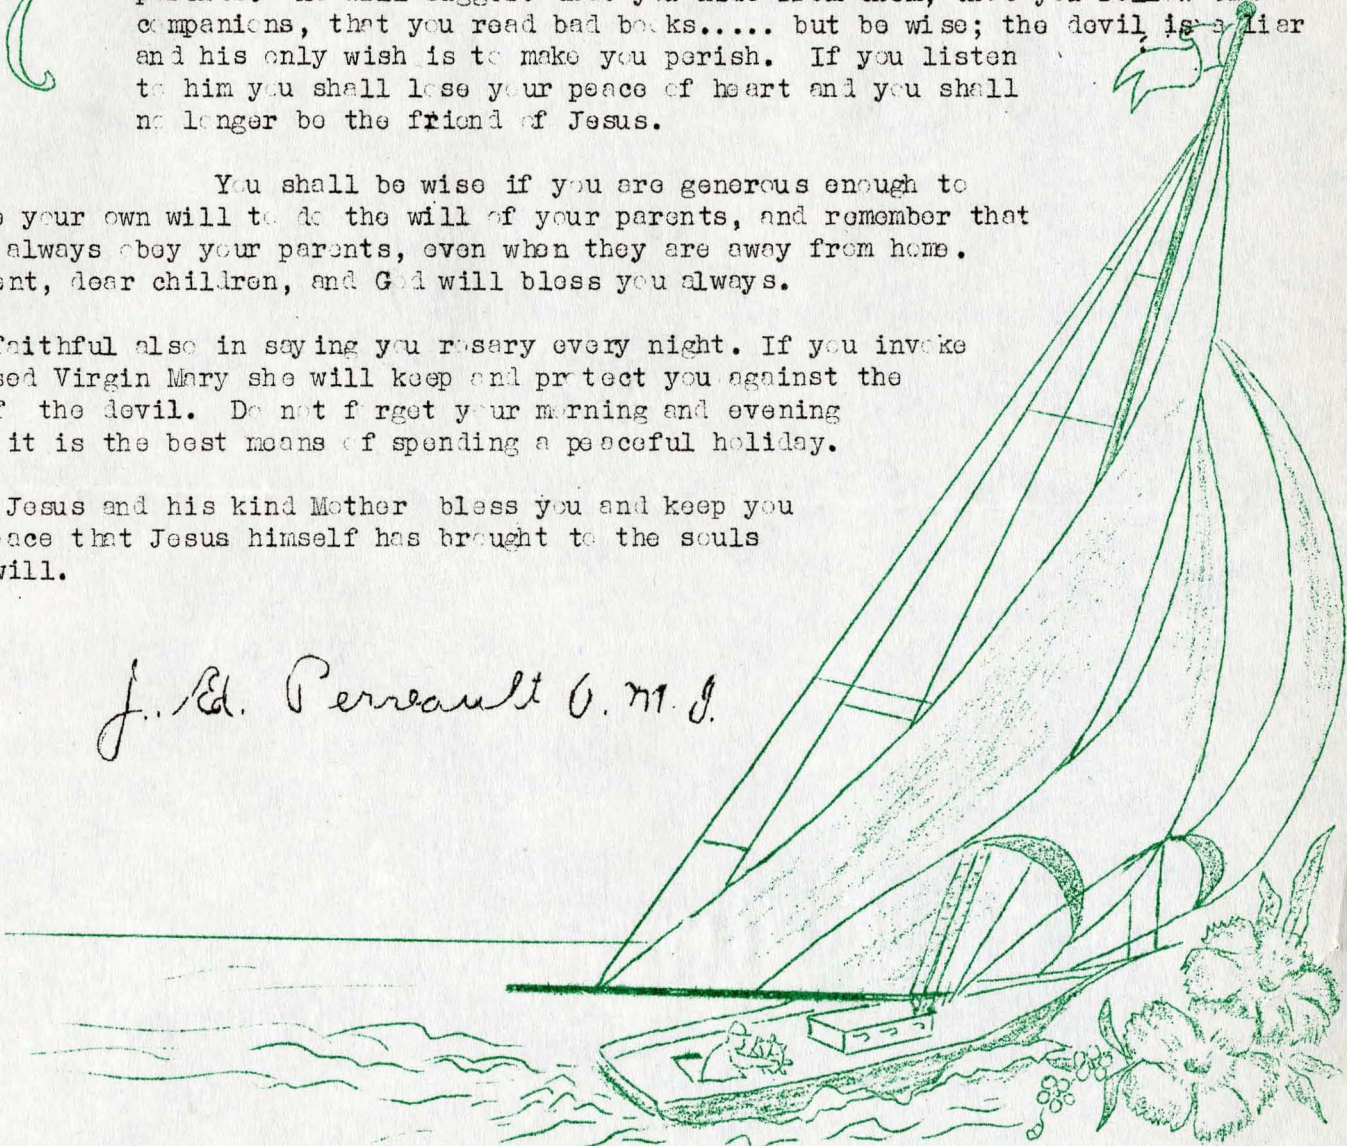 companions, that you read bad books..... but be wise; the devil is a liar
and his only wish is to make you perish. If you listen
to him you shall lose your peace of heart and you shall
no longer be the friend of Jesus.
You shall be wise if you are generous enough to
your own will to do the will of your parents, and remember that
always obey your parents, even when they are away from home.
dear children, and God will bless you always.
faithful also in saying you rosary every night. If you invoke
Virgin Mary she will keep and protect you against the
the devil. Do not forget your morning and evening
it is the best means of spending a peaceful holiday.
Jesus and his kind Mother bless you and keep you
that Jesus himself has brought to the souls
will.
J. Ed. Perreault O.M.I.